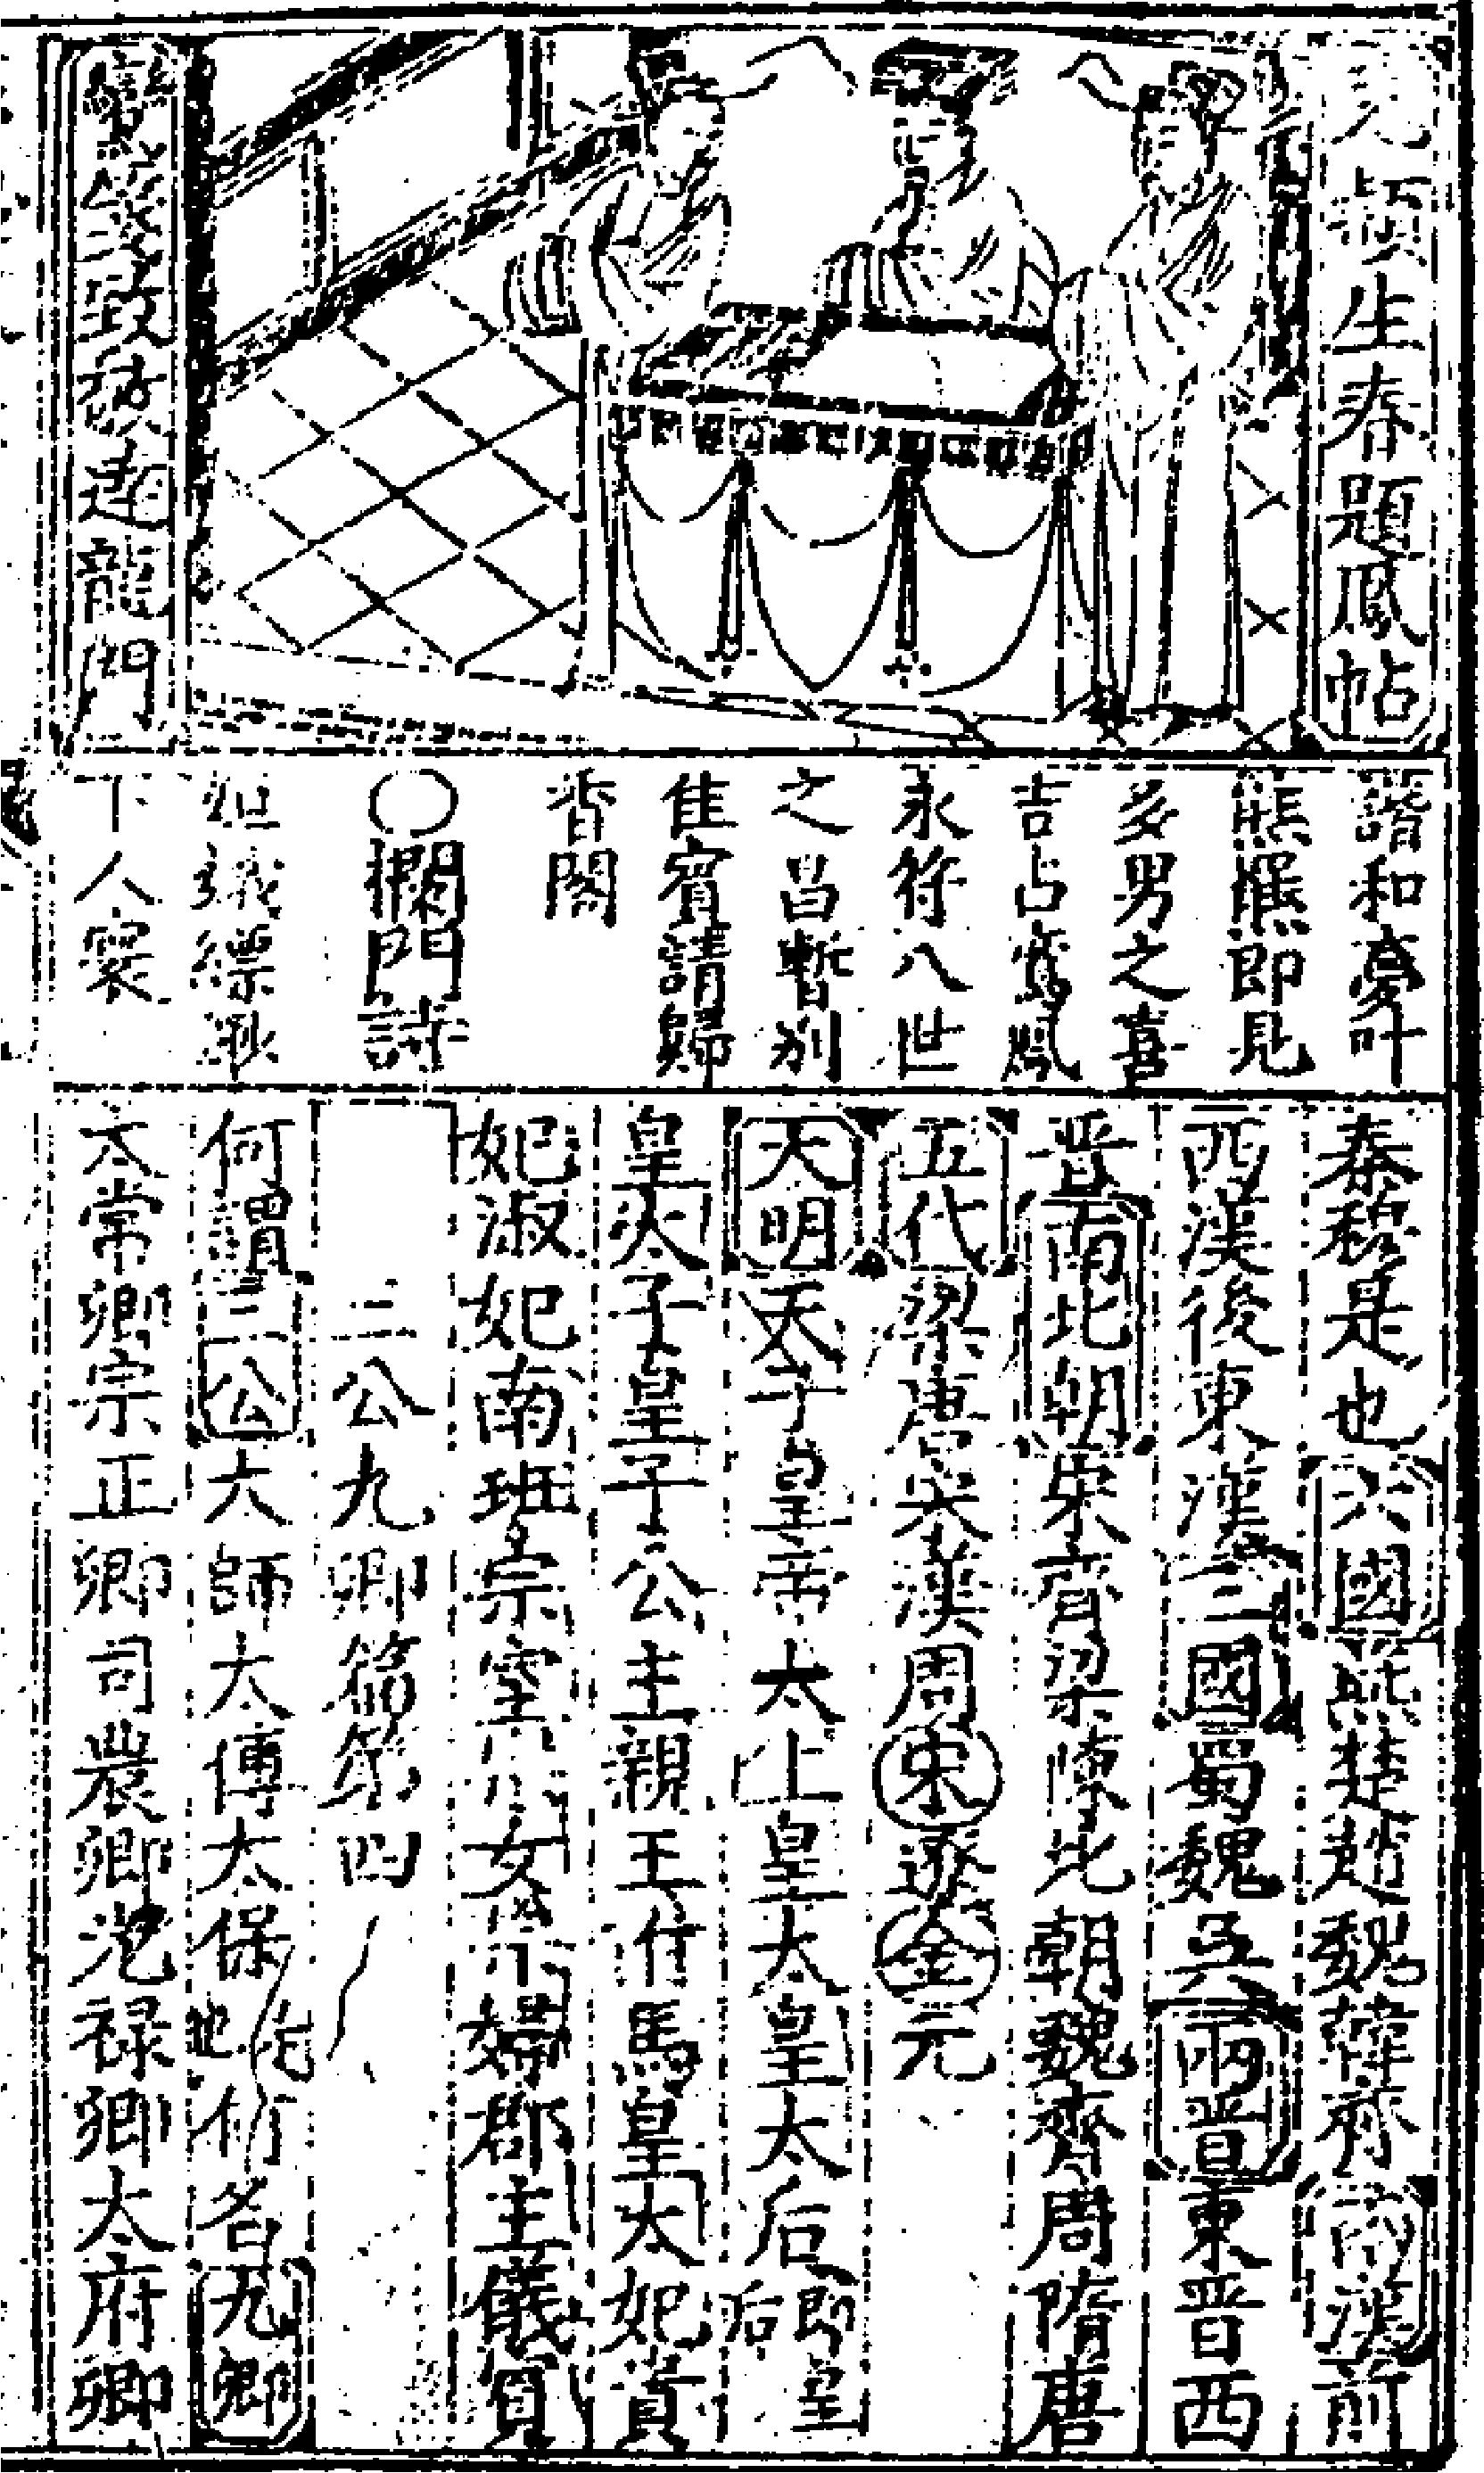 生春題鳳帖
鸞箋致發達龍門
諧和夢叶
熊羆即見
多男之喜
吉占鸞鳳
永符八世
之昌暫別
佳賓請歸
皆閣
○攔門詩
姮娥縹緲
下人寰
秦穆是也六國燕楚趙魏韓齊兩漢前
西漢後東漢三國蜀魏吳兩晋東晋西
晋南北朝宋齊梁陳北朝魏齊周隋唐
五代梁唐晋漢周宋遼金元
大明天子皇帝太上皇太皇太后即皇后
皇太子皇子公主親王駙馬皇太妃貴
妃淑妃南班宗室宗女宗婦郡主儀賓
三公九卿篇第四
何謂三公太師太傅太保 名九卿
太常卿宗正卿司農卿光禄卿太府卿